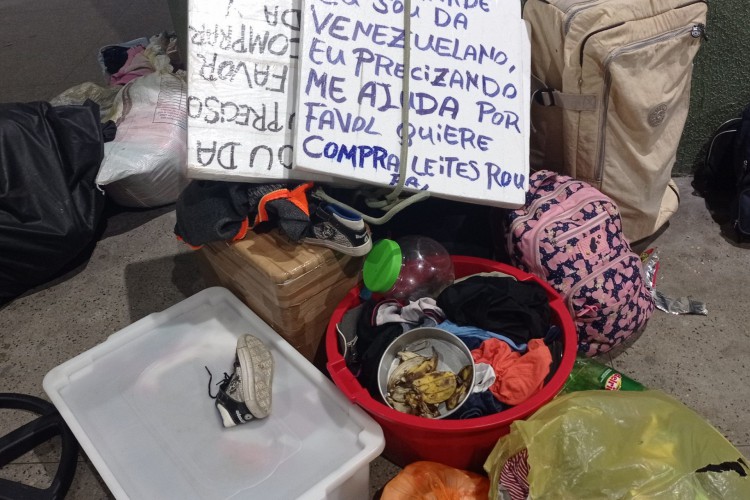 EU SOU DA
VENEZUELANO,
EU PRECIZANDO
ME AJUDA POR
FAVOL QUIERE
COMPRA LEITES ROU
DA
COMPRAR
FAVOR
PRECISO
OU DA